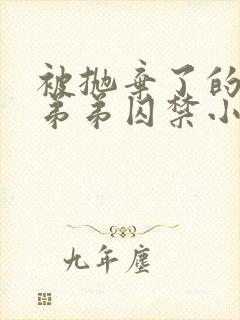 被抛弃了的
弟弟囚禁小
九年尘